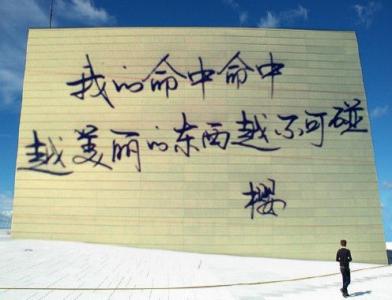 我的命中命中
越美丽的东西越不可碰
樱